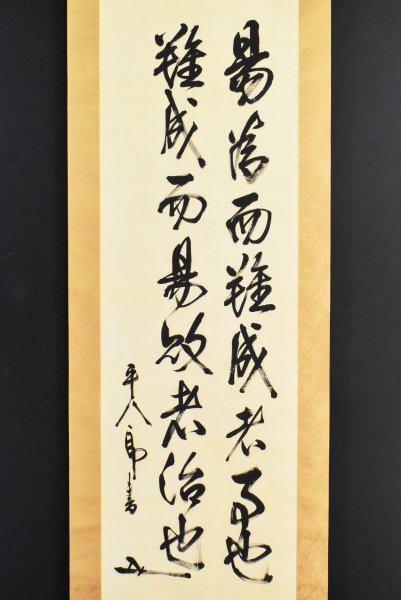 易落而難成者事也
難成而易敗者治也
平八郎書